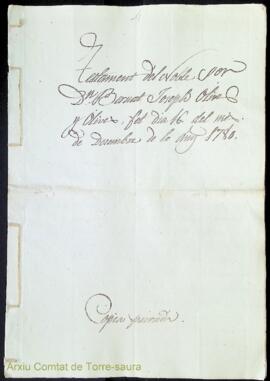 Testament del Noble, S.or
D.n Bernat Joseph Olives
y Olives, fet dia 16 del mes
de Desembre de lo any 1780.
Copia privada.
Arxiu Comtat de Torre-saura